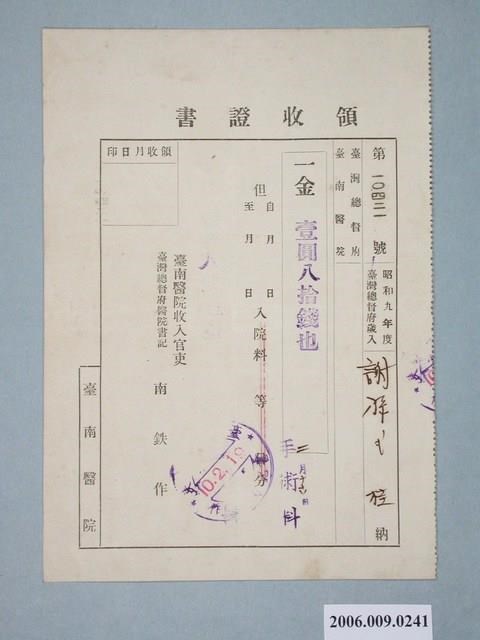 領收證書
第一〇四三一號
昭和九年度
臺灣總督府歲入
謝
殿
納
臺灣總督府
臺南醫院
一金 壹圓八拾錢也
但
自 月 日
至 月 日
入院料 等 分
二月十
日
手術料
10.2.19
臺南醫院收入官吏
臺灣總督府醫院書記
南鉄作
領收月日印
臺南醫院
2006.009.0241